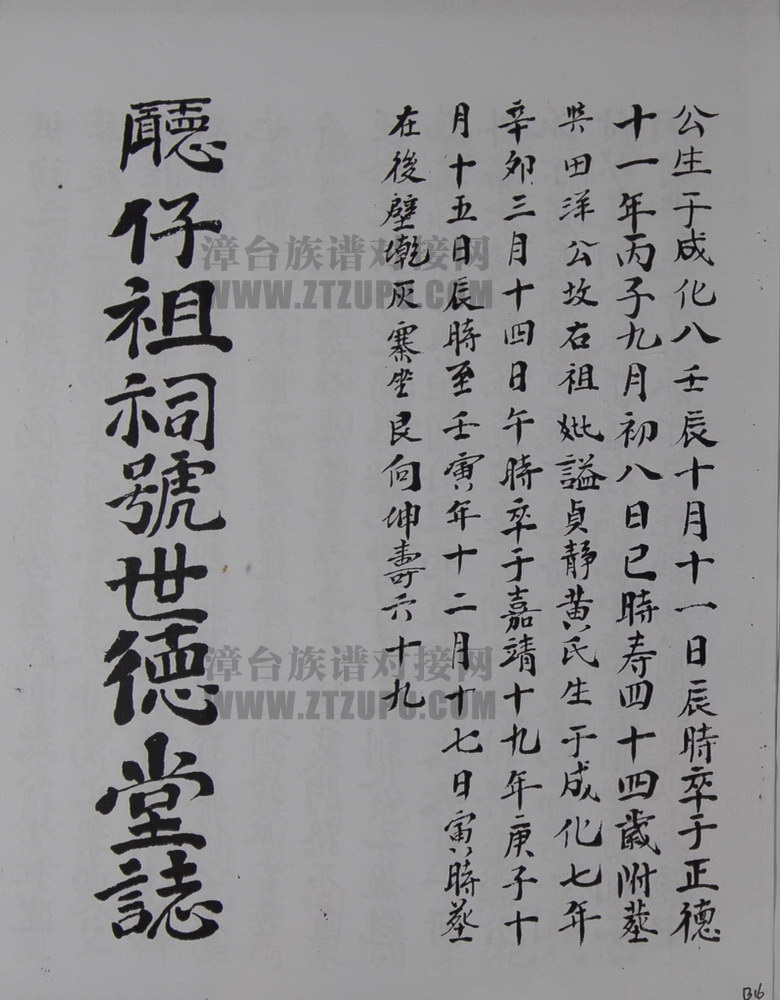 公生于成化八壬辰十月十一日辰時卒于正德
十一年丙子九月初八日巳時寿四十四歲附塟
吳田洋公坟右祖妣諡貞靜黃氏生于成化七年
辛夘三月十四日午時卒于嘉靖十九年庚子十
月十五日辰時至壬寅年十二月十七日寅時塟
在後壁墘灰寨坐艮向坤壽六十九
廳仔祖祠號世德堂誌
漳台族谱对接网
WWW.ZTZUPU.COM
漳台族谱对接网
WWW.ZTZUPU.COM
B16